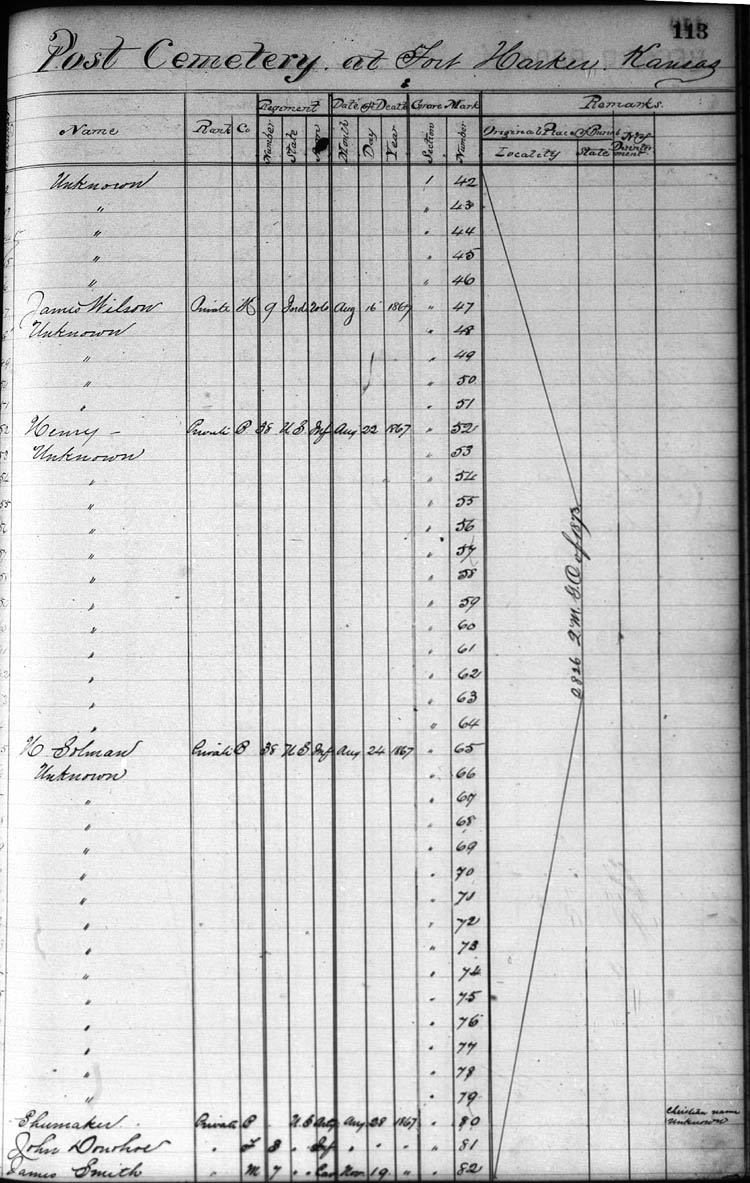 113
Post Cemetery at Fort Harker Kansas
Name Rank Co Regiment Date of Death Grave Mark Remarks
Number State Month Day Year Section Number Original Place of Burial
Locality State
Unknown 1 42
" " 43
" " 44
" " 45
" " 46
James Wilson Private H 9 Ind Aug 16 1867 " 47
Unknown " 48
" " 49
" " 50
" " 51
Henry — Private B 38 U S Inf Aug 22 1867 " 52
Unknown " 53
" " 54
" " 55
" " 56
" " 57
" " 58
" " 59
" " 60
" " 61
" " 62
" " 63
" " 64
H Solman Private B 38 U S Inf Aug 24 1867 " 65
Unknown " 66
" " 67
" " 68
" " 69
" " 70
" " 71
" " 72
" " 73
" " 74
" " 75
" " 76
" " 77
" " 78
" " 79
Shumaker Private B U S Arty Aug 28 1867 " 80 Christian name
unknown
John Donohoe " 3 " Inf " " " " 81
James Smith " M 7 " Cav Nov 19 " " 82
2826 Q.M.G.O. of 1873